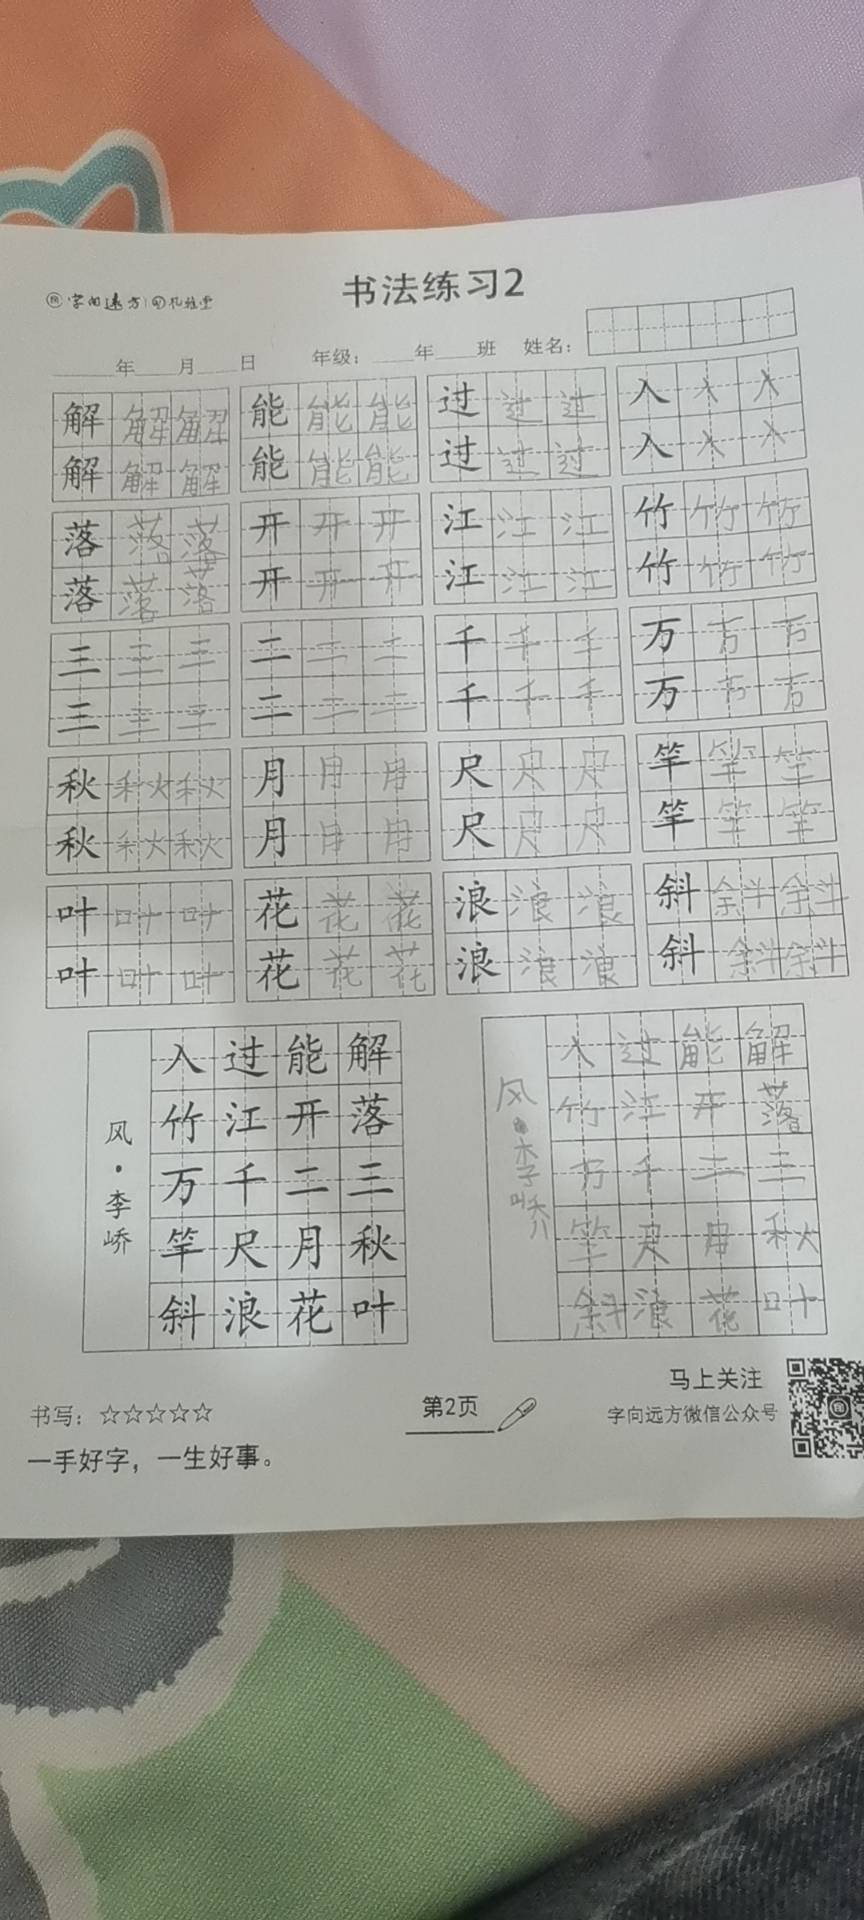 字向远方
书法练习2
年 月 日 年级： 年 班 姓名：
解 解 解 能 能 能 过 过 过 入 入 入
解 解 解 能 能 能 过 过 过 入 入 入
落 落 落 开 开 开 江 江 江 竹 竹 竹
落 落 落 开 开 开 江 江 江 竹 竹 竹
三 三 三 二 二 二 千 千 千 万 万 万
三 三 三 二 二 二 千 千 千 万 万 万
秋 秋 秋 月 月 月 尺 尺 尺 竿 竿 竿
秋 秋 秋 月 月 月 尺 尺 尺 竿 竿 竿
叶 叶 叶 花 花 花 浪 浪 浪 斜 斜 斜
叶 叶 叶 花 花 花 浪 浪 浪 斜 斜 斜
解落三秋叶
能开二月花
过江千尺浪
入竹万竿斜
风·李峤
解落三秋叶
能开二月花
过江千尺浪
入竹万竿斜
风·李
书写：☆☆☆☆☆
一手好字，一生好事。
第2页
马上关注
字向远方微信公众号